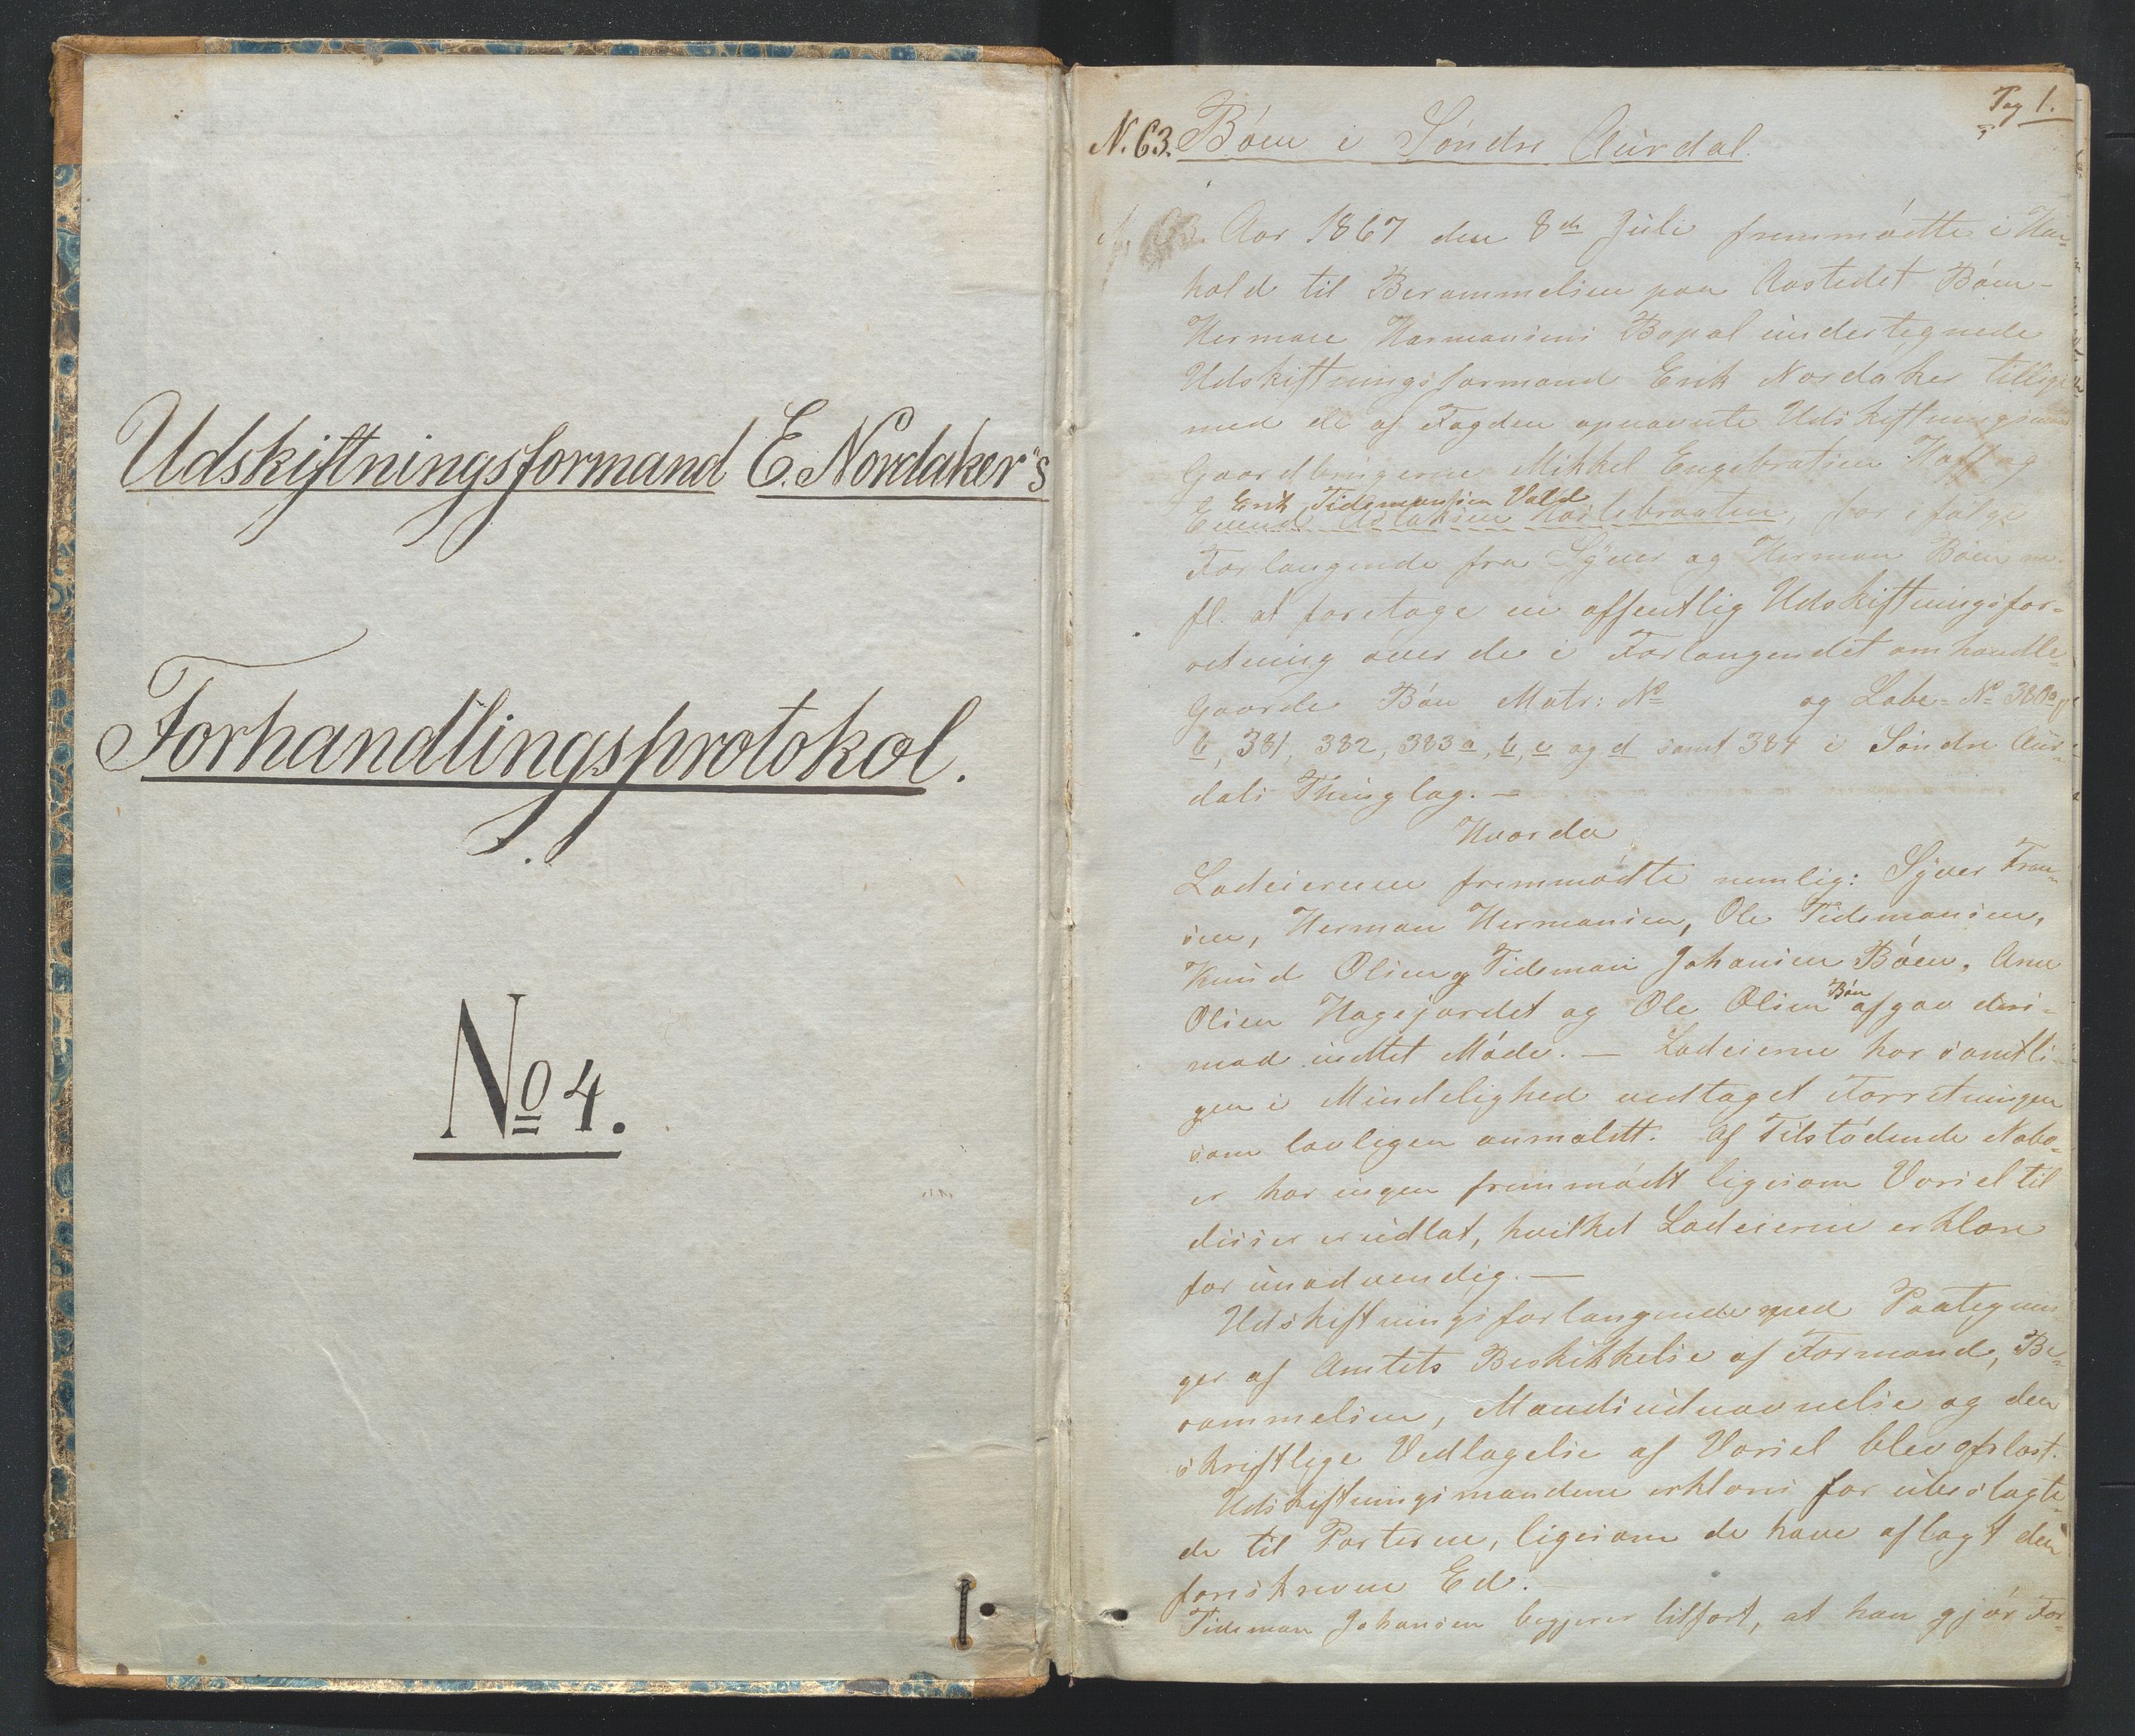 Udskiftningsformand E. Nordaker's
Forhandlingsprotokol.
No 4.
Pag 1.
N. 63. Böen i Söndre Aurdal.
Aar 1867 den 8de Juli fremmödte i Hen-
hold til Berammelsen paa Aastedet Böen-
Herman Hermansens Bopæl undertegnede
Udskiftningsformand Erik Nordaker tillige
med de af Fogden opnævnte Udskiftningsmænd
Gaardbrugerne Mikkel Engebretsen Hoff og
Erik Tidemansen Vold
Evend Aslaksen, for ifölge
Forlangende fra Syver og Herman Böen m.
fl. at foretage en offentlig Udskiftningsfor-
retning over de i Forlangendet omhandlede
Gaarde Böen Matr: No og Löbe-No 380a og
b, 381, 382, 383a, b, c og d samt 384 i Söndre Aur-
dals Thinglag. —
Hvorda
Lodeierne fremmödte nemlig: Syver Fran-
sen, Herman Hermansen, Ole Tidemansen,
Knud Olsen og Tideman Johansen Böen, Arne
Olsen Hagejordet og Ole Olsen Böen afgav deri-
mod intet Möde. — Lodeierne har samtli-
gen i Mindelighed vedtaget Forretningen
som lovligen anmeldt. Af Tilstödende Nabo-
er har ingen fremmödt ligesom Varsel til
disse er udlat, hvilket Lodeierne erklære
for unödvendig. —
Udskiftningsforlangende med Paategnin-
ger af Amtets Beskikkelse af Formand, Be-
rammelsen, Mandsudnævnelse og den
skriftlige Vedtagelse af Varsel blev oplæst.
Udskiftningsmændene erklæres for ubeslægte-
de til Parterne, ligesom de have aflagt den
foreskrevne Ed. —
Tideman Johansen begjerer tilfört, at han gjör For-